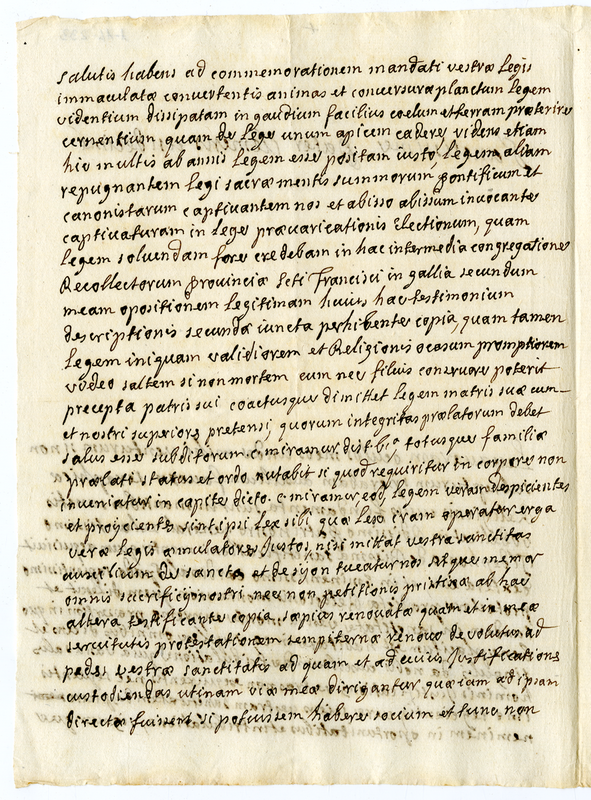 salutis habens ad commemorationem mandati vestræ legis
immaculatæ convertentis animas et conversuræ planctum legem
videntium dissipatam in gaudium facilius coelum et terram præterire
cernentium quam de Lege unum apicem cadere, videns etiam
hic multis ab annis Legem esse positam iusto, Legem aliam
repugnantem Legi sacræ mentis summorum pontificum et
canonistarum captivantem nos et abisso abissum invocante
captivaturam in Lege prævaricationis Electionum, quam
Legem solvendam fore credebam in hac intermedia congregatione
Recollectorum provinciæ Scti Francisci in gallia secundum
meam opositionem Legitimam huius hac testimonium
descriptionis secunda iuncta perhibente copia, quam tamen
Legem iniquam validiorem et Religionis ocasum promptiorem
video saltem si non mortem cum nec filius conservare poterit
precepta patris sui coactusque dimittet Legem matris suæ cum
et nostri superiores pretensi, quorum integritas prælatorum debet
salus esse subditorum. c. miramur. dist. totusque familiæ
prælati status et ordo nutabit si quod requiritur in corpore non
inveniatur in capite dicto. c. miramur Legem veram despicientes
et projicientes sint ipsi Lex sibi quæ Lex iram operatur erga
veræ Legis æmulatores Justos, nisi mittat vestra sanctitas
auxilium de sancto et de syon tueatur nos atque memor
omnis sacrificij nostri nec non petitionis pristinæ ab hac
altera testificante copia sapias renovatæ quam et in meæ
servitutis protestationem sempiternæ renovo devolutus ad
pedes vestræ sanctitatis ad quam et ad cuius Justificationes
custodiendas utinam viæ meæ dirigantur quæ iam ad ipsam
directæ fuissent si potuissem habere socium et tunc non